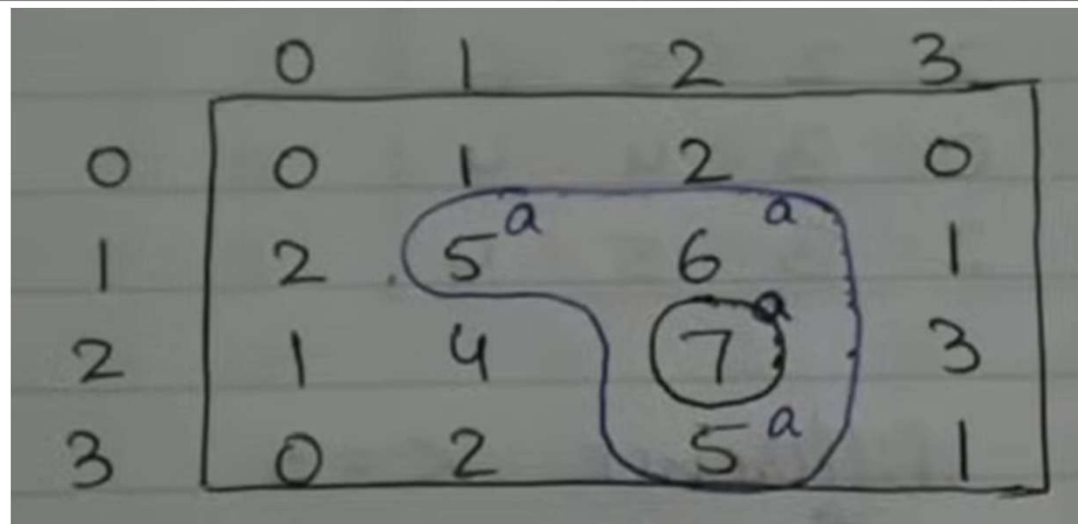 0 1 2 3
0 0 1 2 0
1 2 5a 6a 1
2 1 4 7a 3
3 0 2 5a 1